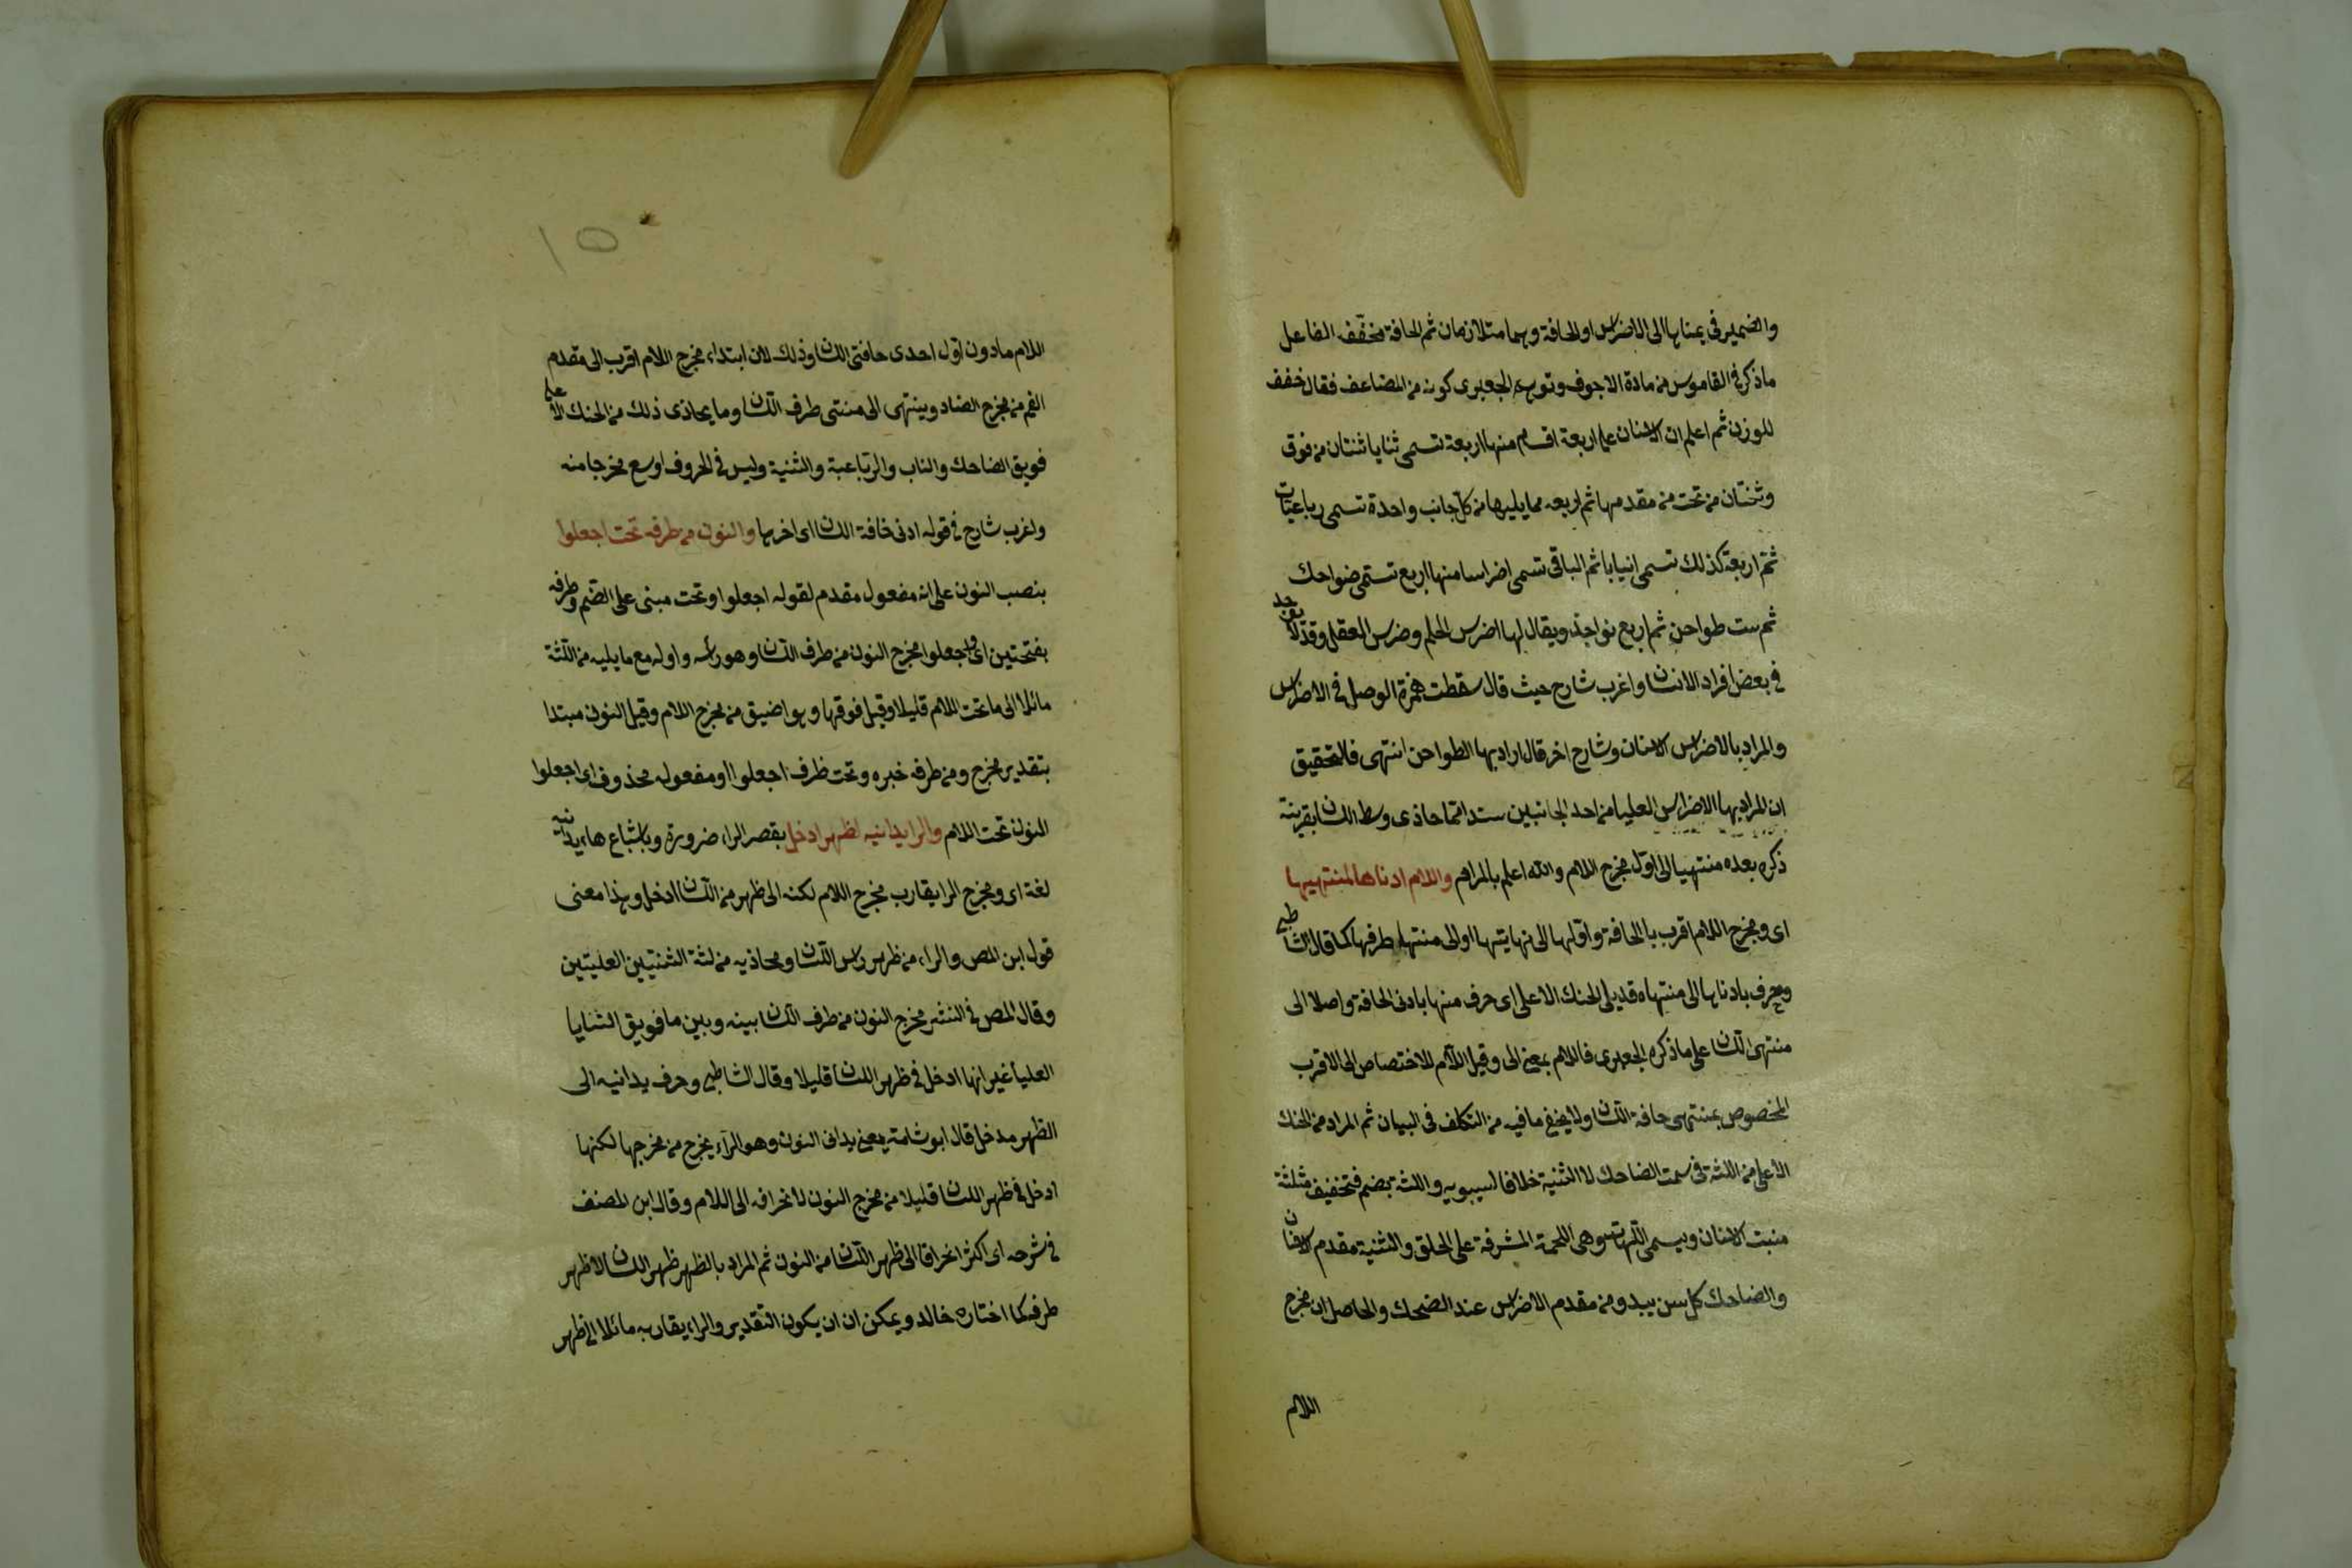 والضمير في يمناها الى الاضراس او الحافة وهما متلازمان ثم الحافة مخفف الفاعل
ما ذكر في القاموس من مادة الاجوف وتوهم الجعبرى كونه من المضاعف فقال خفف
للوزن ثم اعلم ان الاسنان على اربعة اقسام منها اربعة تسمى ثنايا ثنتان من فوق
وثنتان من تحت من مقدمها ثم اربعه مما يليها من كل جانب واحدة تسمى رباعيات
ثم اربعة كذلك تسمى انيابا ثم الباقى تسمى اضراسا منها اربع تسمى ضواحك
ثم ست طواحن ثم اربع نواجذ ويقال لها اضرس الحلم وضرس العقل وقد لا يوجد
في بعض افراد الانسان واغرب شارح حيث قال سقطت همزة الوصل في الاضراس
والمراد بالاضراس الاسنان وشارح اخر قال اراد بها الطواحن انتهى فالتحقيق
ان المراد بها الاضراس العليا من احد الجانبين ستدا مما حاذى وسط اللسان بقرينة
ذكره بعده منتهيا الى اول مخرج اللام والله اعلم بالمرام واللام ادناها لمنتهيها
اى ومخرج اللام اقرب با الحافة واولها الى نهايتها اولى منتهى طرفها كما قال الشاطبى
وحرف بادناها الى منتهاه قد يلى الحنك الاعلى اى حرف منها بادنى الحافة واصلا الى
منتهى اللسان على ما ذكره الجعبرى فاللام بمعنى الى وقيل اللام للاختصاص الى الاقرب
المخصوص بمنتهى حافة اللسان ولا يخفى ما فيه من التكلف في البيان ثم المراد من الحنك
الاعلى من اللثة في سمت الضاحك لا الثنية خلافا لسيبويه واللثه بضم فتخفيف مثلثة
منبت الاسنان ويسمى اللهات وهى اللحمة المشرفة على الحلق والثنية مقدم الاسنان
والضاحك كل سن يبدو من مقدم الاضراس عند الضحك والحاصل ان مخرج
اللام
١٥
اللام مادون اول احدى حافتى اللسان وذلك لان ابتداء مخرج اللام اقرب الى مقدم
الفم من مخرج الضاد وينتهى الى منتهى طرف اللسان وما يحاذى ذلك من الحنك الاعلى
فويق الضاحك والناب والرباعية والثنية وليس في الحروف اوسع مخرجا منه
واغرب شارح في قوله ادنى حافة اللسان اى اخرها والنون من طرفه تحت اجعلوا
بنصب النون على انه مفعول مقدم لقوله اجعلوا وتحت مبنى على الضم وطرفه
بفتحتين اى واجعلوا مخرج النون من طرف اللسان وهو راسه واوله مع ما يليه من اللثة
مائلا الى ما تحت اللام قليلا وقيل فوقها وهو اضيق من مخرج اللام وقيل النون مبتدا
بتقدير مخرج ومن طرفه خبره وتحت ظرف اجعلوا او مفعوله محذوف اى اجعلوا
النون تحت اللام والرا يدانيه لظهر ادخل بقصر الراء ضرورة وباشباع هاء يدانيه
لغة اى ومخرج الرا يقارب مخرج اللام لكنه الى ظهر من اللسان ادخل وهذا معنى
قول ابن المص والراء من ظهر راس اللسان ومحاذيه من لثة الثنيتين العليتين
وقال المص في النشر مخرج النون من طرف اللسان بينه وبين ما فويق الثنايا
العليا غير انها ادخل في ظهر اللسان قليلا وقال الشاطبى وحرف يدانيه الى
الظهر مدخل قال ابو شامة يعنى يدانى النون وهو الراء يخرج من مخرجها لكنها
ادخل في ظهر اللسان قليلا من مخرج النون لانحرافه الى اللام وقال ابن المصنف
في شرحه اى اكثر انحرافا الى ظهر اللسان من النون ثم المراد بالظهر ظهر اللسان لا ظهر
طرفه كما اختاره خالد ويمكن ان ان يكون التقدير والراء يقاربه مائلا الى ظهر